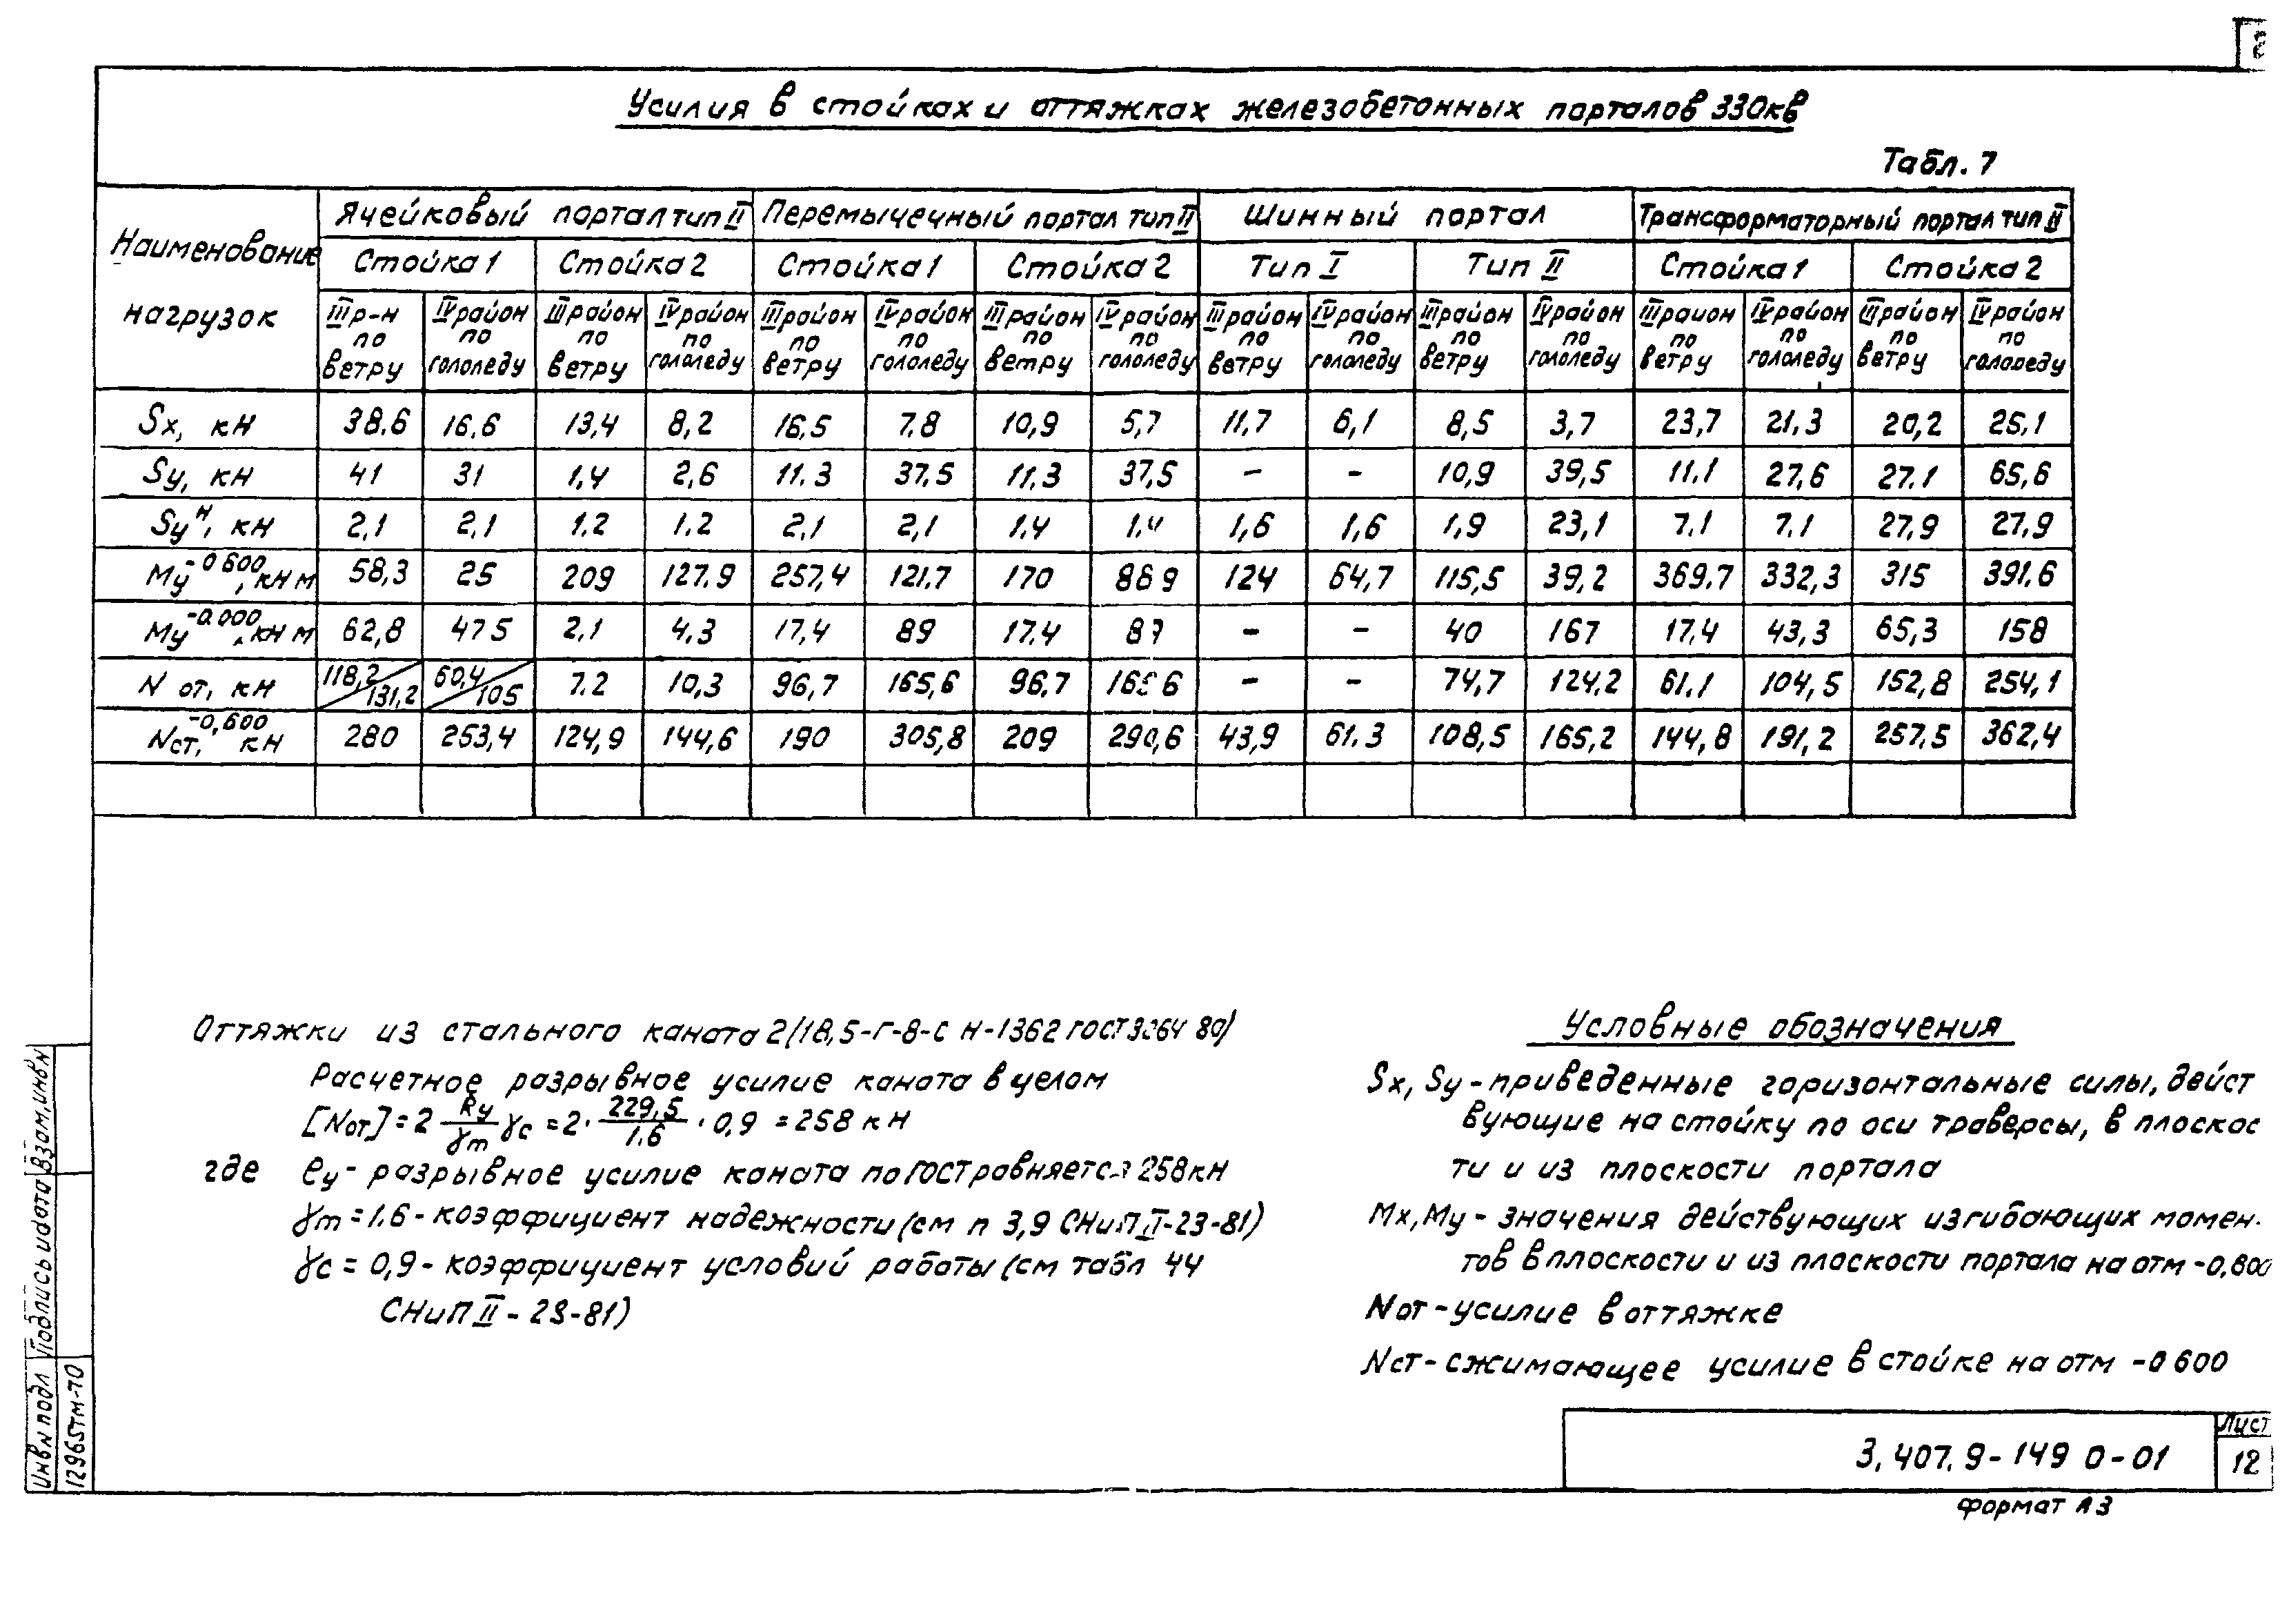 Усилия в стойках и оттяжках железобетонных порталов 330кв
Табл. 7
Наименование нагрузок | Ячейковый портал тип II | Перемычечный портал тип II | Шинный портал | Трансформаторный портал тип II
Стойка 1 | Стойка 2 | Стойка 1 | Стойка 2 | Тип I | Тип II | Стойка 1 | Стойка 2
III р-н по ветру | IV район по гололеду | III район по ветру | IV район по гололеду | III район по ветру | IV район по гололеду | III район по ветру | IV район по гололеду | III район по ветру | IV район по гололеду | III район по ветру | IV район по гололеду | III район по ветру | IV район по гололеду | III район по ветру | IV район по гололеду
Sx, кН | 38.6 | 16.6 | 13,4 | 8,2 | 16,5 | 7.8 | 10,9 | 5,7 | 11,7 | 6,1 | 8,5 | 3,7 | 23,7 | 21,3 | 20,2 | 25,1
Sy, кН | 41 | 31 | 1,4 | 2,6 | 11.3 | 37.5 | 11.3 | 37,5 | – | – | 10,9 | 39,5 | 11.1 | 27,6 | 27.1 | 65,6
Syн, кН | 2,1 | 2,1 | 1.2 | 1.2 | 2,1 | 2,1 | 1.4 | 1.4 | 1,6 | 1,6 | 1,9 | 23,1 | 7.1 | 7.1 | 27,9 | 27,9
My -0 600, кН м | 58,3 | 25 | 209 | 127.9 | 257,4 | 121.7 | 170 | 88 9 | 124 | 64,7 | 115,5 | 39,2 | 369.7 | 332,3 | 315 | 391.6
My -0.000, кН м | 62,8 | 47 5 | 2.1 | 4.3 | 17,4 | 89 | 17.4 | 89 | – | – | 40 | 167 | 17.4 | 43,3 | 65,3 | 158
N от, кН | 118,2/131,2 | 60,4/105 | 7.2 | 10,3 | 96,7 | 165,6 | 96,7 | – | – | 74,7 | 124,2 | 61.1 | 104,5 | 152,8 | 254,1
Nст, -0,600 кН | 280 | 253,4 | 124,9 | 144,6 | 190 | 305,8 | 209 | 290,6 | 43,9 | 61.3 | 108,5 | 165,2 | 144,8 | 191,2 | 257.5 | 362,4
Оттяжки из стального каната 2(18,5-Г-8-С Н-1362 ГОСТ 80)
Расчетное разрывное усилие каната в целом
[Nот] = 2 Rу/γm γc = 2 · 229,5/1.6 · 0,9 = 258 кН
где Ру - разрывное усилие каната по ГОСТ равняется 258кН
γm = 1.6 - коэффициент надежности (см п 3,9 СНиП II-23-81)
γc = 0,9 - коэффициент условий работы (см табл 44
СНиП II - 23-81)
Условные обозначения
Sx, Sy - приведенные горизонтальные силы, дейст
вующие на стойку по оси траверсы, в плоскос
ти и из плоскости портала
Mx, My - значения действующих изгибающих момен-
тов в плоскости и из плоскости портала на отм -0,600
Nот - усилие в оттяжке
Nст - сжимающее усилие в стойке на отм -0 600
Взам, инв N
Подпись и дата
Инв N подл
12965тм-Т0
3.407.9-149 0-01
Лист
12
формат А3